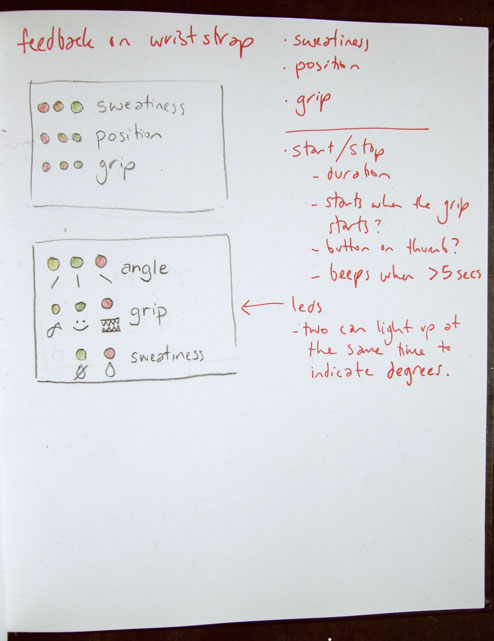 feedback on wriststrap
· sweatiness
· position
· grip
sweatiness
position
grip
· start/stop
- duration
- starts when the grip
starts?
- button on thumb?
- beeps when >5 secs
angle
grip
sweatiness
leds
- two can light up at
the same time to
indicate degrees.